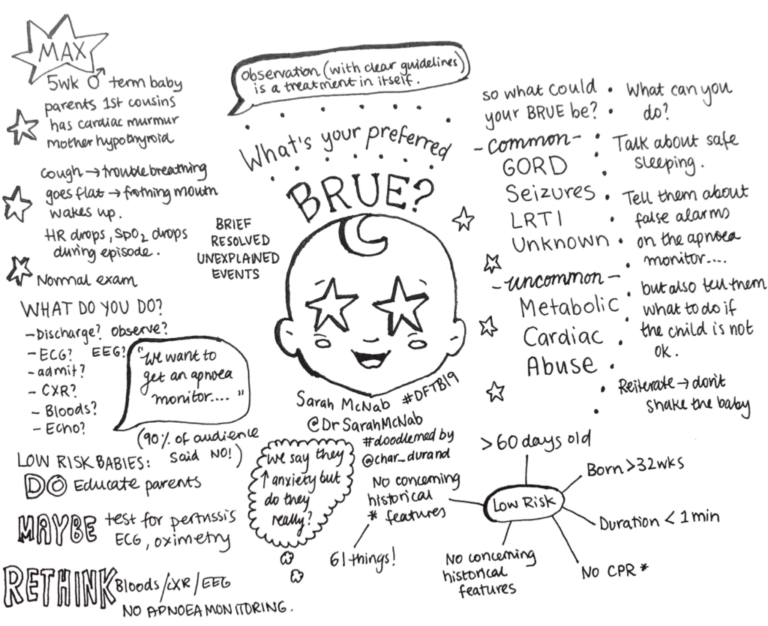 MAX
5wk ♂ term baby
parents 1st cousins
has cardiac murmur
mother hypothyroid
cough → trouble breathing
goes flat → frothing mouth
wakes up.
HR drops, SpO2 drops
during episode.
Normal exam
WHAT DO YOU DO?
- Discharge? observe?
- ECG? EEG?
- admit?
- CXR?
- Bloods?
- Echo?
"We want to
get an apnoea
monitor.... "
(90% of audience
said NO!)
LOW RISK BABIES:
DO Educate parents
MAYBE test for pertussis
ECG, oximetry
RETHINK Bloods/CXR/EEG
NO APNOEA MONITORING.
observation (with clear guidelines)
is a treatment in itself.
What's your preferred
BRUE?
BRIEF
RESOLVED
UNEXPLAINED
EVENTS
Sarah McNab #DFTB19
@DrSarahMcNab
#doodlemed by
@char_durand
We say they
↑ anxiety but
do they
really?
No concerning
historical
* features
61 things!
so what could
your BRUE be?
- common -
GORD
Seizures
LRTI
Unknown
- uncommon -
Metabolic
Cardiac
Abuse
What can you
do?
Talk about safe
sleeping.
Tell them about
false alarms
on the apnoea
monitor....
but also tell them
what to do if
the child is not
ok.
Reiterate → don't
shake the baby
Low Risk
>60 days old
Born >32wks
Duration < 1 min
No CPR *
No concerning
historical
features